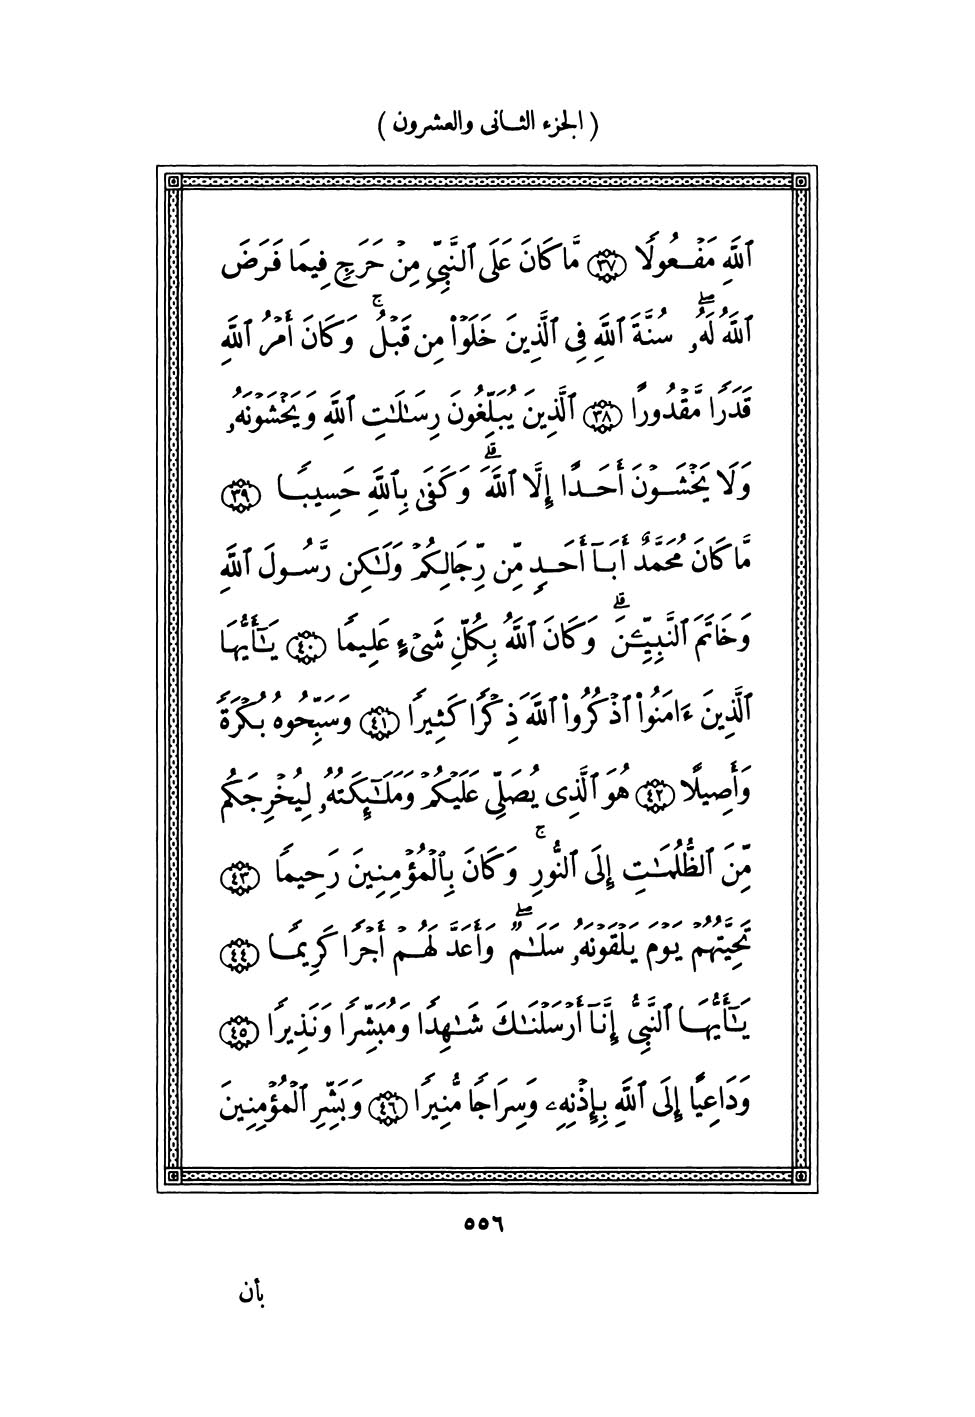 ( الجزء الثانى والعشرون )
ٱللَّهِ مَفْعُولًا ۝٣٧ مَّا كَانَ عَلَى ٱلنَّبِىِّ مِنْ حَرَجٍ فِيمَا فَرَضَ
ٱللَّهُ لَهُۥۖ سُنَّةَ ٱللَّهِ فِى ٱلَّذِينَ خَلَوْا۟ مِن قَبْلُۚ وَكَانَ أَمْرُ ٱللَّهِ
قَدَرًا مَّقْدُورًا ۝٣٨ ٱلَّذِينَ يُبَلِّغُونَ رِسَـٰلَـٰتِ ٱللَّهِ وَيَخْشَوْنَهُۥ
وَلَا يَخْشَوْنَ أَحَدًا إِلَّا ٱللَّهَۗ وَكَفَىٰ بِٱللَّهِ حَسِيبًا ۝٣٩
مَّا كَانَ مُحَمَّدٌ أَبَآ أَحَدٍ مِّن رِّجَالِكُمْ وَلَـٰكِن رَّسُولَ ٱللَّهِ
وَخَاتَمَ ٱلنَّبِيِّـۧنَۗ وَكَانَ ٱللَّهُ بِكُلِّ شَىْءٍ عَلِيمًا ۝٤٠ يَـٰٓأَيُّهَا
ٱلَّذِينَ ءَامَنُوا۟ ٱذْكُرُوا۟ ٱللَّهَ ذِكْرًا كَثِيرًا ۝٤١ وَسَبِّحُوهُ بُكْرَةً
وَأَصِيلًا ۝٤٢ هُوَ ٱلَّذِى يُصَلِّى عَلَيْكُمْ وَمَلَـٰٓئِكَتُهُۥ لِيُخْرِجَكُم
مِّنَ ٱلظُّلُمَـٰتِ إِلَى ٱلنُّورِۚ وَكَانَ بِٱلْمُؤْمِنِينَ رَحِيمًا ۝٤٣
تَحِيَّتُهُمْ يَوْمَ يَلْقَوْنَهُۥ سَلَـٰمٌۖ وَأَعَدَّ لَهُمْ أَجْرًا كَرِيمًا ۝٤٤
يَـٰٓأَيُّهَا ٱلنَّبِىُّ إِنَّآ أَرْسَلْنَـٰكَ شَـٰهِدًا وَمُبَشِّرًا وَنَذِيرًا ۝٤٥
وَدَاعِيًا إِلَى ٱللَّهِ بِإِذْنِهِۦ وَسِرَاجًا مُّنِيرًا ۝٤٦ وَبَشِّرِ ٱلْمُؤْمِنِينَ
٥٥٦
بأن